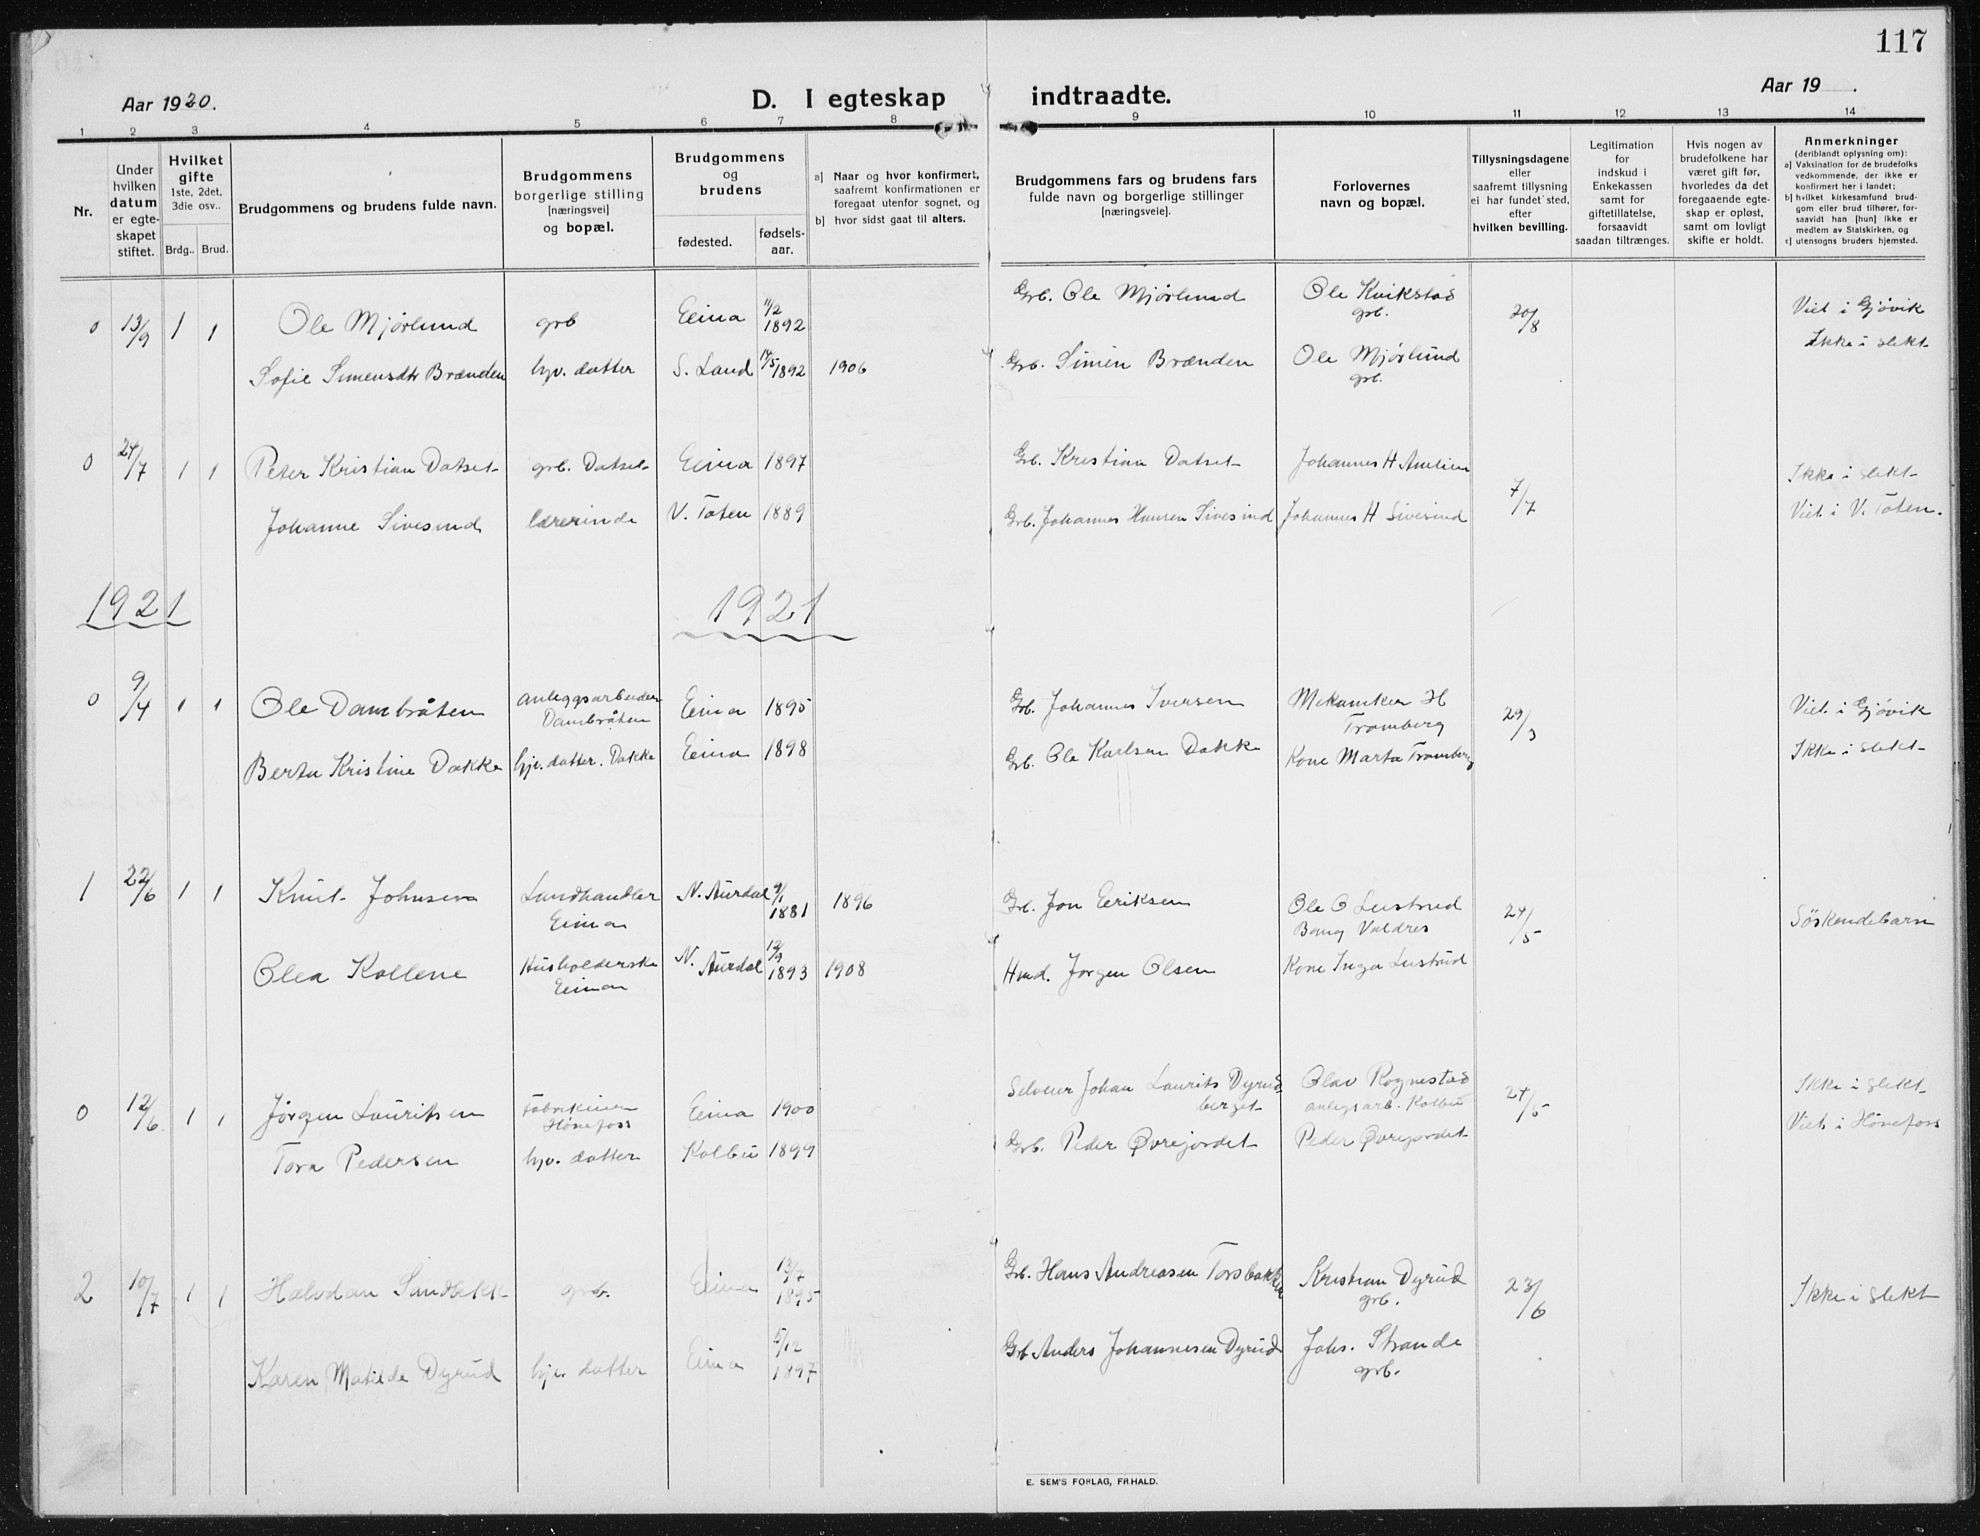 117
Aar 1920.
D. I egteskap indtraadte.
Aar 19 .
1 2 3 4 5 6 7 8 9 10 11 12 13 14
Nr.
Under
hvilken
datum
er egte-
skapet
stiftet.
Hvilket
gifte
1ste, 2det,
3die osv..
Brdg.. Brud.
Brudgommens og brudens fulde navn.
Brudgommens
borgerlige stilling
[næringsvei]
og bopæl.
Brudgommens
og
brudens
fødested.
fødsels-
aar.
a] Naar og hvor konfirmert,
saafremt konfirmationen er
foregaat utenfor sognet, og
b] hvor sidst gaat til alters.
Brudgommens fars og brudens fars
fulde navn og borgerlige stillinger
[næringsveie].
Forlovernes
navn og bopæl.
Tillysningsdagene
eller
saafremt tillysning
ei har fundet sted,
efter
hvilken bevilling.
Legitimation
for
indskud i
Enkekassen
samt for
giftetillatelse,
forsaavidt
saadan tiltrænges.
Hvis nogen av
brudefolkene har
været gift før,
hvorledes da det
foregaaende egte-
skap er opløst,
samt om lovligt
skifte er holdt.
Anmerkninger
(deriblandt oplysning om):
a] Vaksination for de brudefolks
vedkommende, der ikke er
konfirmert her i landet;
b] hvilket kirkesamfund brud-
gom eller brud tilhører, for-
saavidt han [hun] ikke er
medlem av Statskirken, og
c] utensogns bruders hjemsted.
0 13/9 1 1 Ole Mjørlund grb Eina 11/2 1892 Grb. Ole Mjørlund Ole Kvikstad grb. 20/8 Viet i Gjøvik
Ikke i slekt
Sofie Simensdtr Brænden hjv. datter S. Land 14/5 1892 1906 Grb. Simen Brænden Ole Mjørlund grb.
0 24/7 1 1 Peter Kristian Datset grb. Datset Eina 1897 Grb. Kristian Datset Johannes H 7/7 Ikke i slekt
Johanne Sivesind lærerinde V. Toten 1889 Grb. Johannes Hansen Sivesind Johannes H Sivesind Viet i V. Toten.
1921 1921
0 9/4 1 1 Ole Dambråten anleggsarbeider
Dambråten Eina 1895 Grb. Johannes Iversen Mekaniker H
Tromberg 29/3 Viet i Gjøvik
Berta Kristine Dakke hjv. datter. Dakke Eina 1898 Grb. Ole Karlsen Dakke Kone Marta Tromberg Ikke i slekt
1 22/6 1 1 Knut Johnsen Landhandler
Eina N. Aurdal 9/1 1881 1896 Grb. Jon Eriksen Ole O Lustrud
Bang Valdres 24/5 Søskendebarn
Olea Kollene Husholderske
Eina N. Aurdal 12/9 1893 1908 Hmd. Jørgen Olsen Kone Inga Lustrud
0 12/6 1 1 Jørgen Lauritsen
Hønefoss Eina 1900 Selveier Johan Laurits Dyrud
berget Olav Rognestad
anlegsarb. Kolbu 24/5 Ikke i slekt
Viet i Hønefoss
Tora Pedersen hjv. datter Kolbu 1899 Grb. Peder Øvrejordet Peder Øvrejordet
2 10/7 1 1 Halvdan Sandbekk grb. Eina 13/7 1895 Grb. Hans Andreasen Torsbakken Kristian Dyrud
grb. 23/6 Ikke i slekt
Karen Matilde Dyrud hjv. datter Eina 5/12 1897 Grb Anders Johannesen Dyrud Johs. Strande
grb.
E. SEM'S FORLAG, FR.HALD.